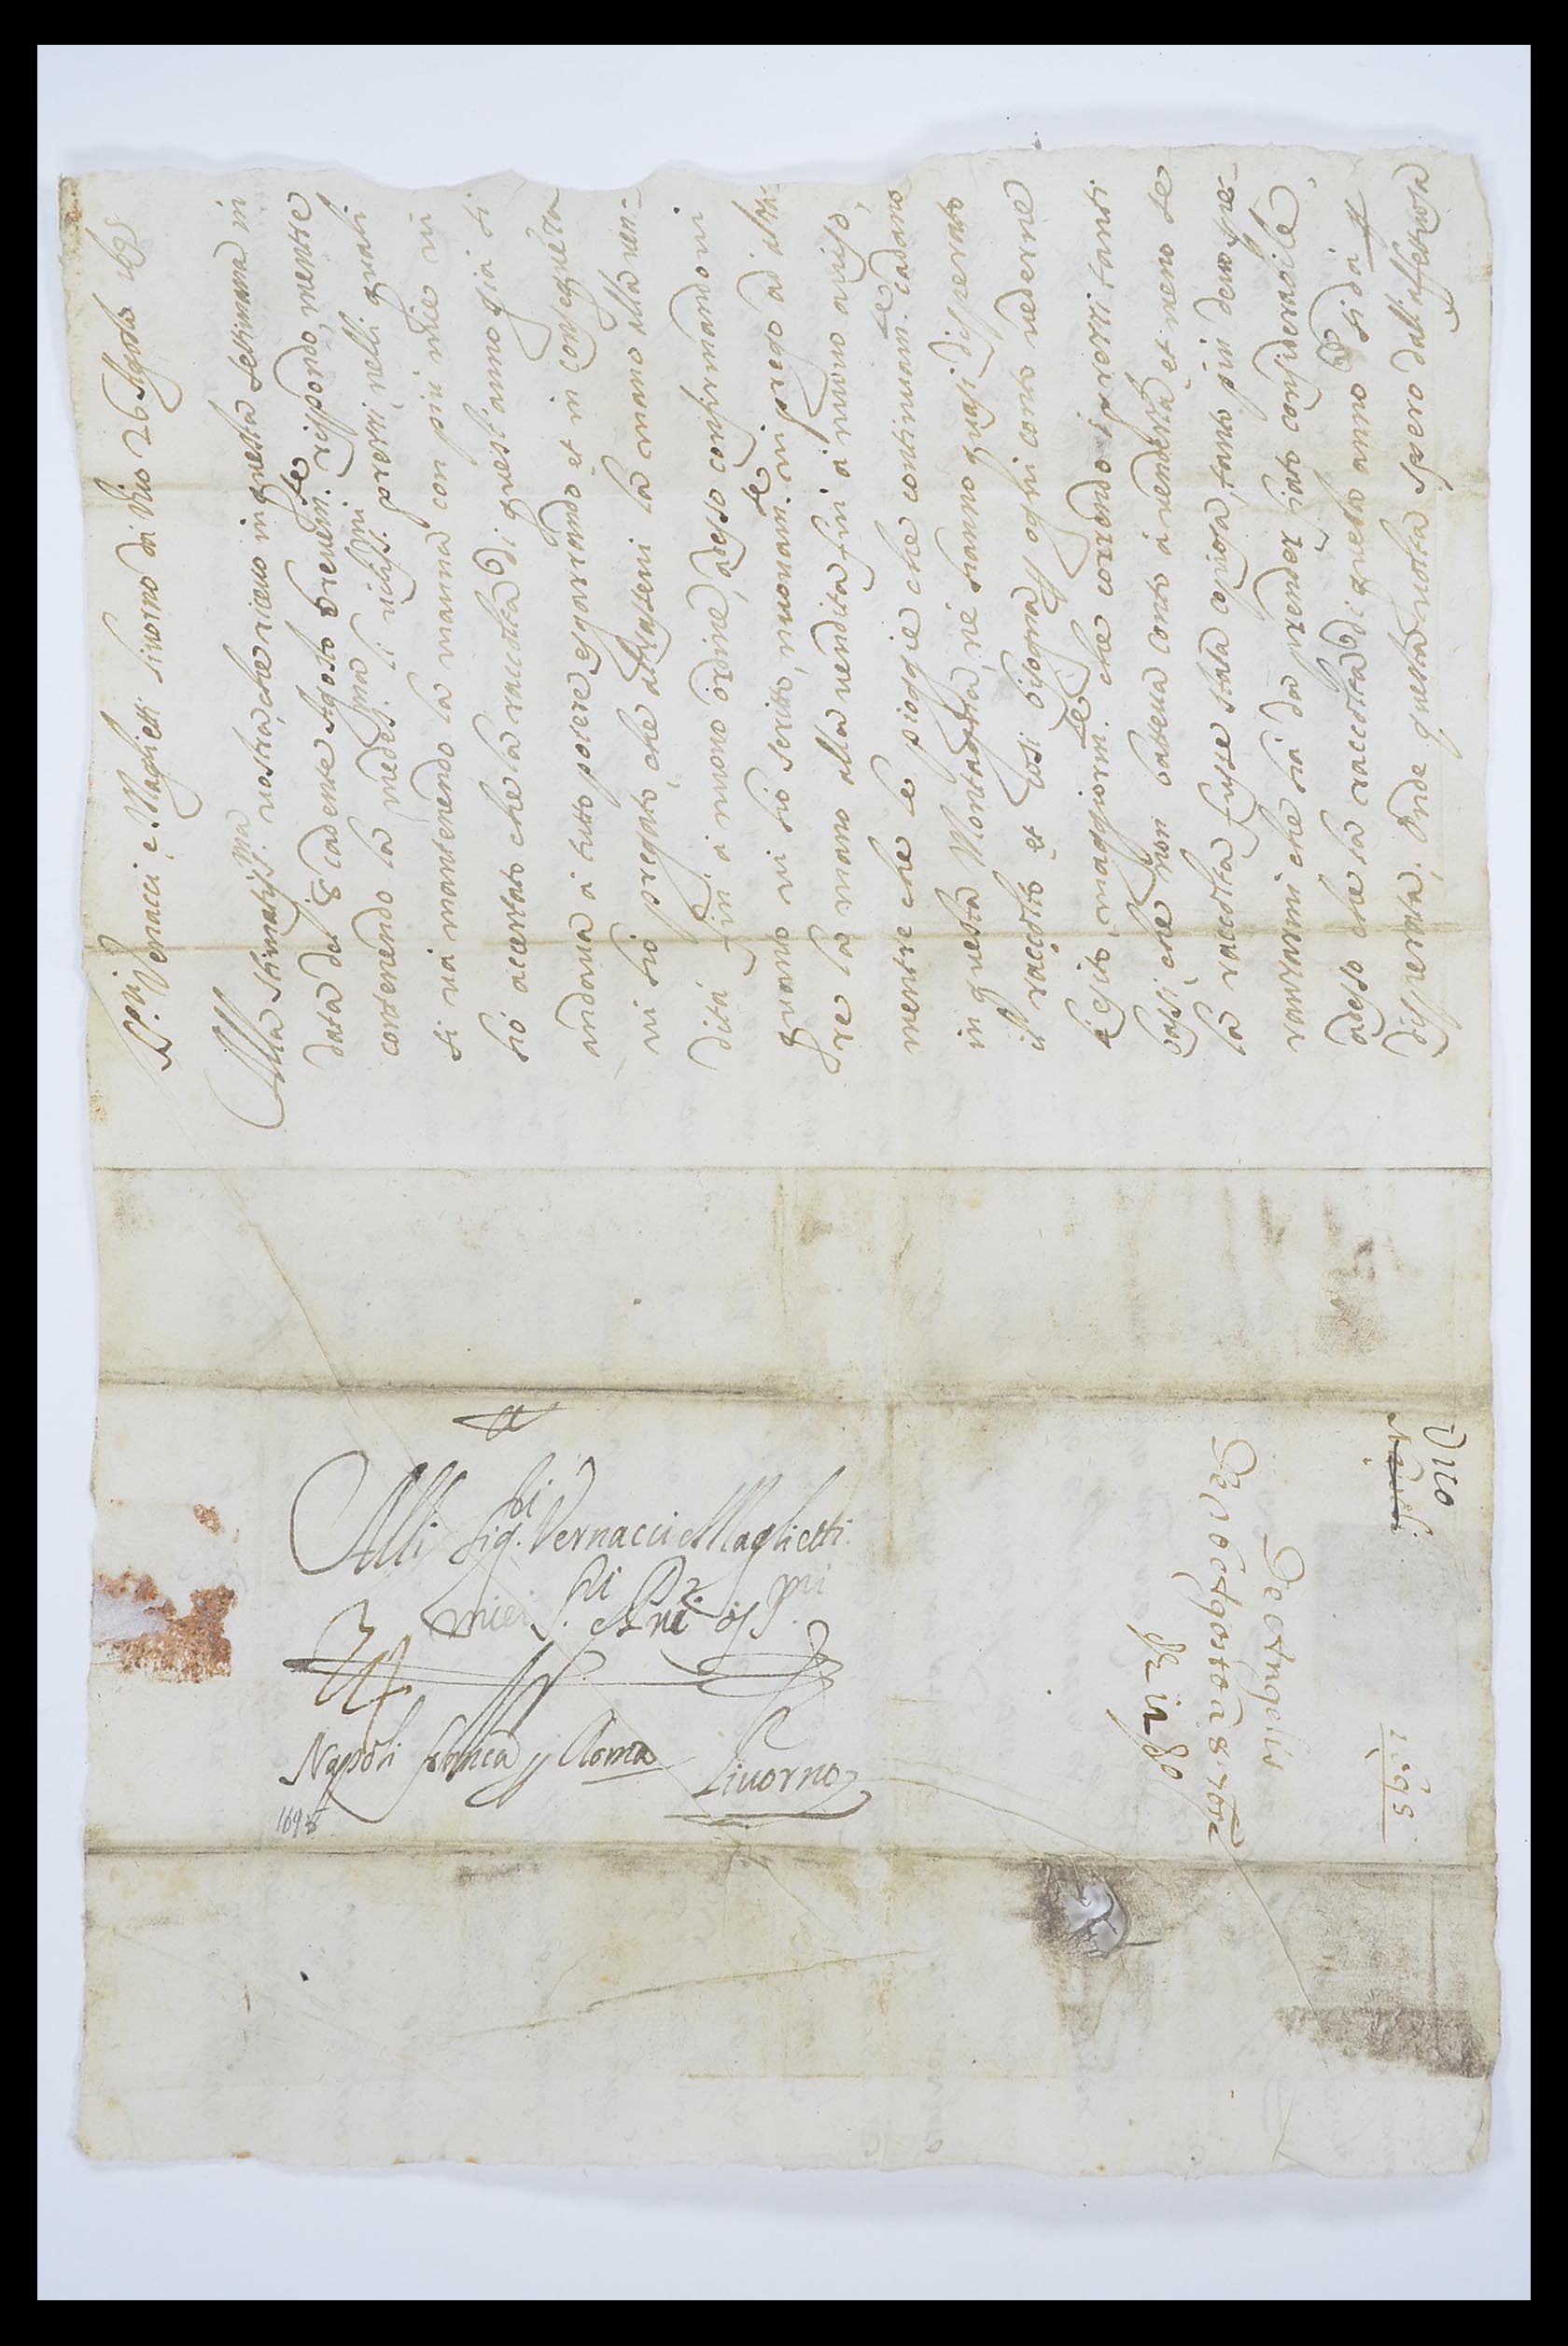 SS.ri Vernacci, e Maglietti Livorno da Vio 26 Agosto 1695
Alla stimatiss.ma vostra, che ricevo in questa settimana in
data del 8 cadente Agosto brevem.te rispondo, mentre
contenendo la medes.ma li vilissi.mi prezzi, nelli quali
si và mantenendo la manna con più mie vi
hò accertato che la raccolta di quest'anno già si
andava à tutto potere sgarrando et in conseguenza
vi hò pregato, che alzassevi la mano alla ven-
dita fin' à nuovo ordine, adesso confirmandovi
quanto vi hò scritto, nuovam.te vi prego ad alza-
re la mano alla vendita fin' à nuovo aviso,
mentre che le pioggie che continuam.te cadano
in questa Montagna, ne hanno quasi disperato
il raccolto et così bisogna p ogni conto vederne
l'esito maggiorm.te che correndo i prezzi tanti
bassi, che non batteva conto à venderla et meno se
la raccolta fusse stata copiosa, tanto più devo pre-
murarmi che hà da prender fiato considerabile,
adesso che la raccolta di questo anno si dà p
disperata. Onde questa volta spero dall'affettuosa
Alli Sig.ri Vernacci e Maglietti
miei S.ri e Pni oss.mi
Napoli franca p Roma
Livorno
1695
Vico
1695
De Angelis
De 26 Agosto à 8 7bre